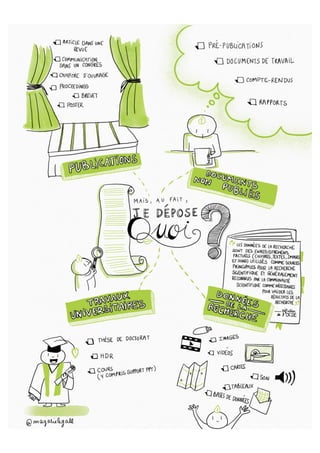 ARTICLE DANS UNE
REVUE
COMMUNICATION
DANS UN CONGRÈS
CHAPITRE D'OUVRAGE
PROCEEDINGS
BREVET
POSTER
PUBLICATIONS
PRÉ-PUBLICATIONS
DOCUMENTS DE TRAVAIL
COMPTE-RENDUS
RAPPORTS
DOCUMENTS
NON PUBLIÉS
MAIS, AU FAIT,
JE DÉPOSE
Quoi ?
LES DONNÉES DE LA RECHERCHE
SONT DES ENREGISTREMENTS
FACTUELS (CHIFFRES, TEXTES, IMAGES
ET SONS) UTILISÉS COMME SOURCES
PRINCIPALES POUR LA RECHERCHE
SCIENTIFIQUE ET GÉNÉRALEMENT
RECONNUS PAR LA COMMUNAUTÉ
SCIENTIFIQUE COMME NÉCESSAIRES
POUR VALIDER LES
RÉSULTATS DE LA
RECHERCHE
définition
de l'OCDE
TRAVAUX
UNIVERSITAIRES
DONNÉES
DE LA
RECHERCHE
THÈSE DE DOCTORAT
HDR
COURS
(Y COMPRIS SUPPORT PPT)
IMAGES
VIDÉOS
CARTES
SON
TABLEAUX
BASES DE DONNÉES
@magalielegall